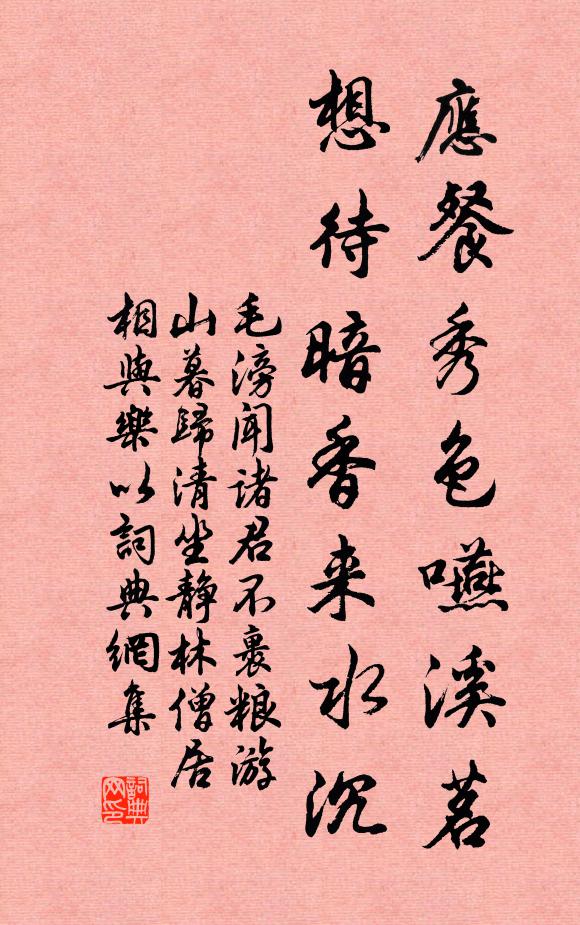 應餐秀色嚥溪茗
想待暗香来水沉
毛滂闻诸君不裹粮游
山暮歸清坐靜林僧居
相與樂以詞典網集
詞典网印